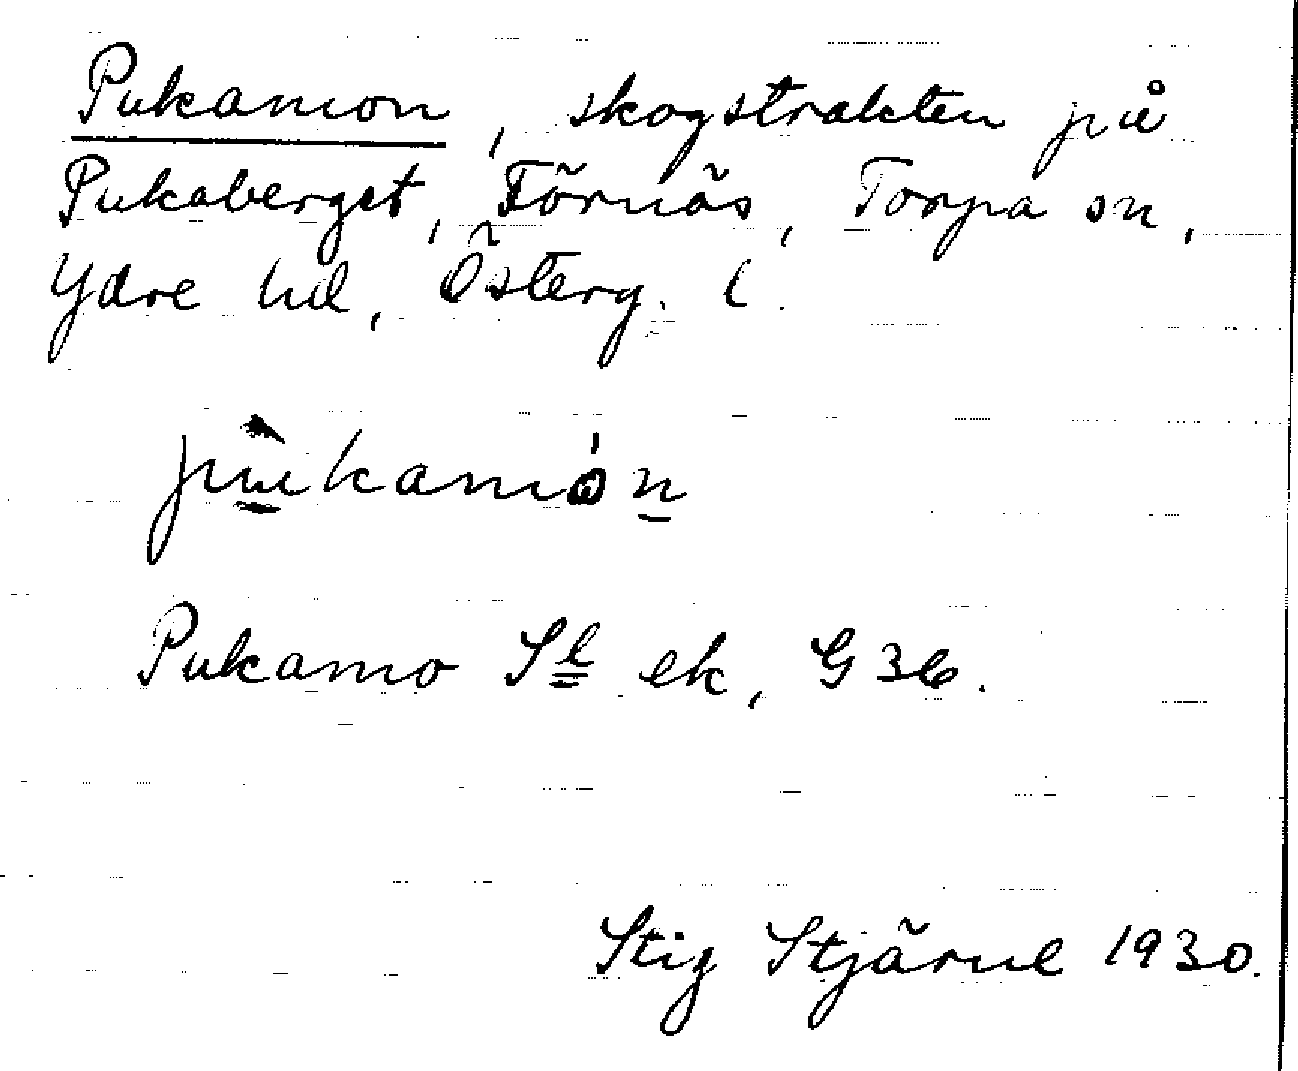 Pukamon, skogstrakten på
Pukaberget, Förnäs, Torpa sn,
Ydre hd, Österg. l.
pùkamón
Pukamo Sk ek, G 36.
Stig Stjärne 1930.